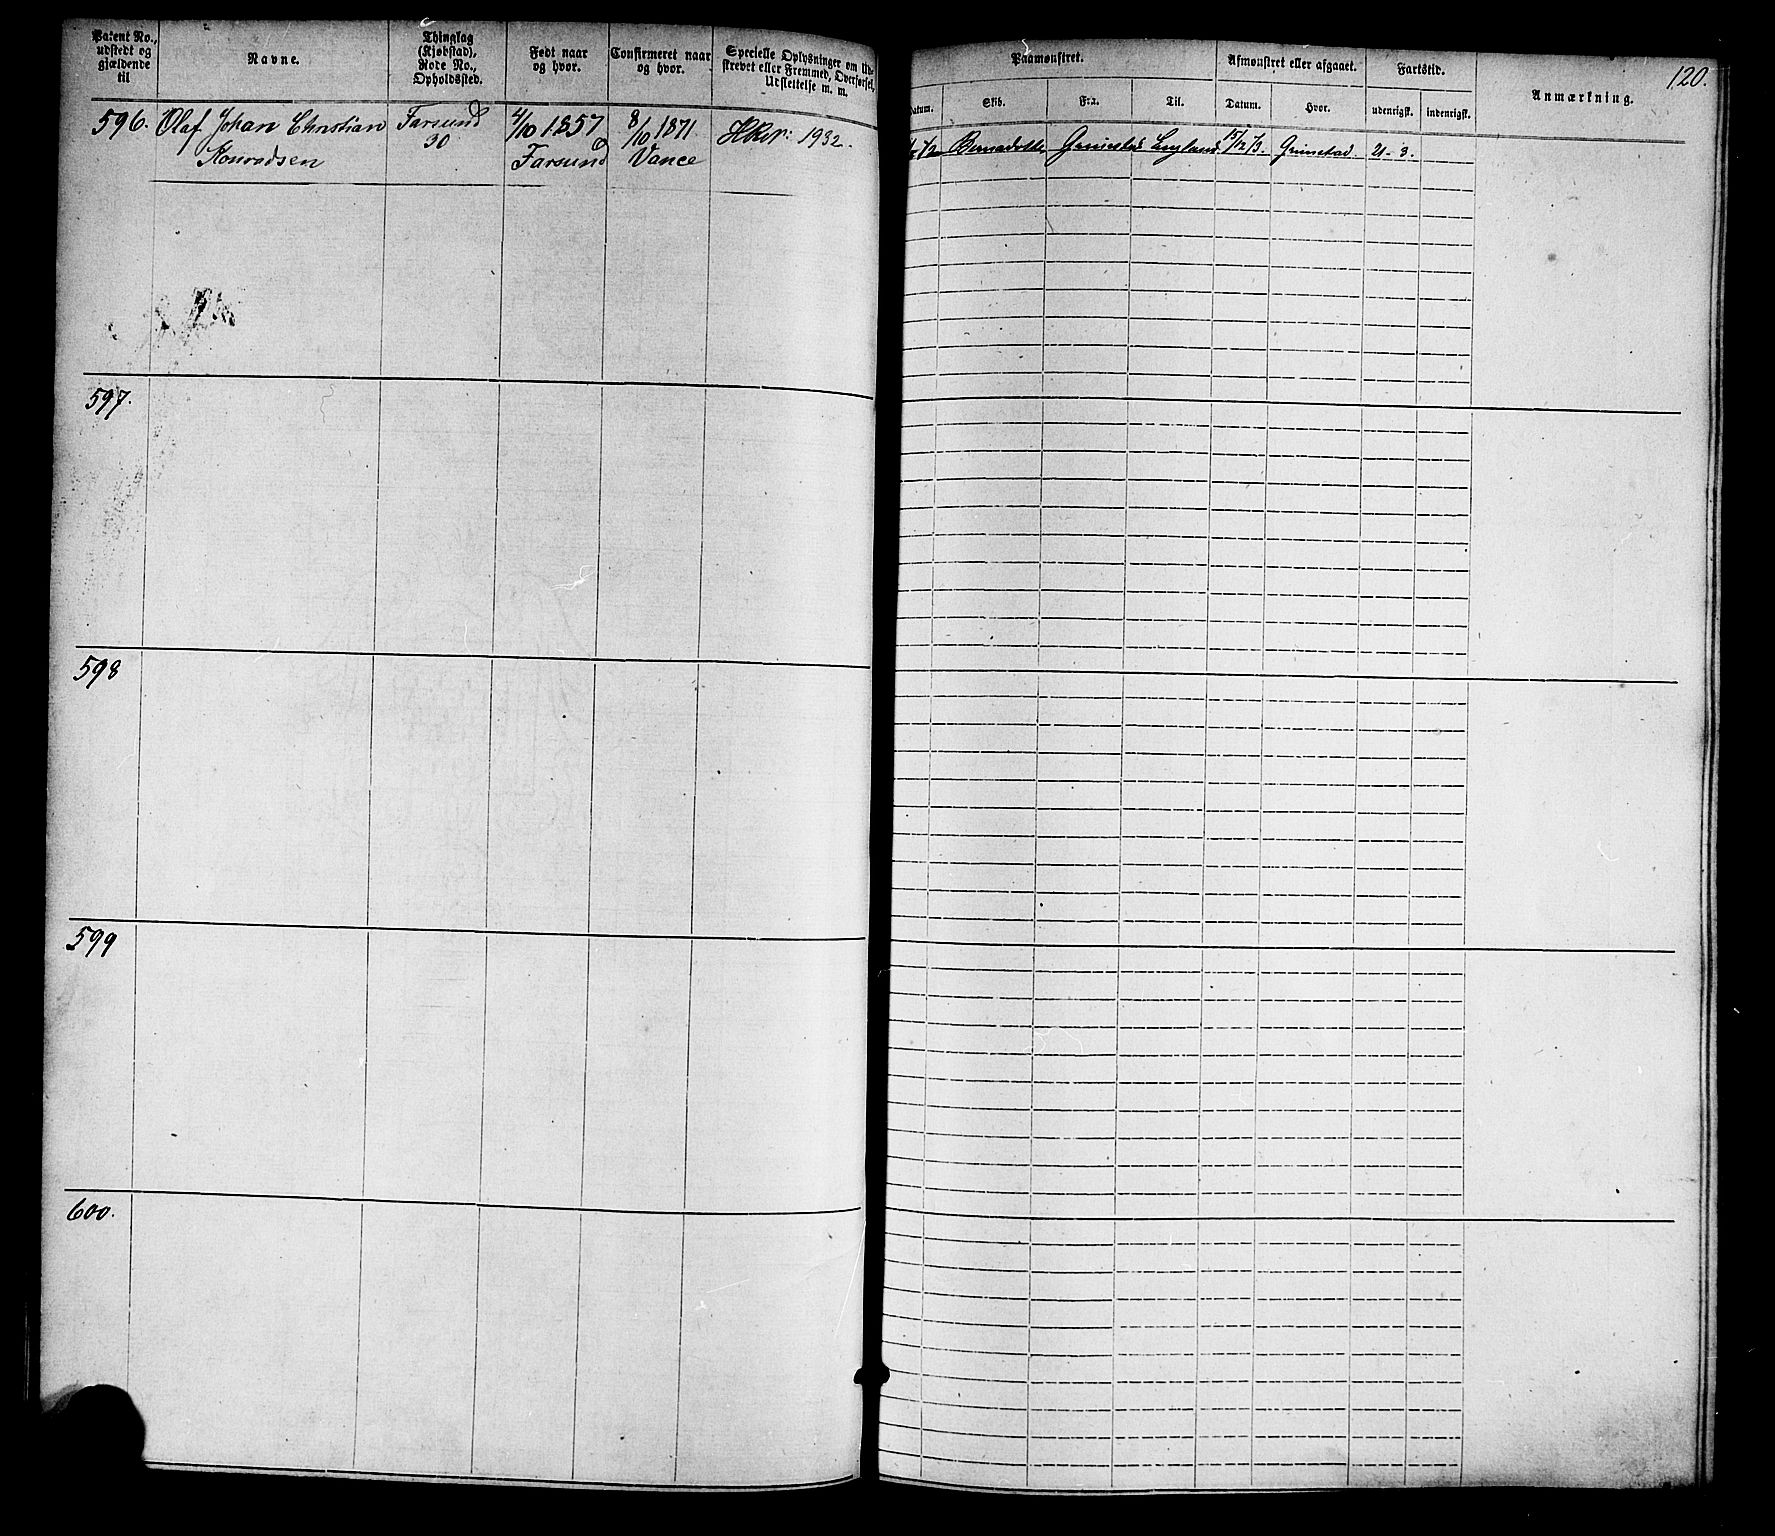 Patent No., udstedt og gjældende til
Navne.
Thinglag (Kjøbstad), Rode No., Opholdssted.
Født naar og hvor.
Confirmeret naar og hvor.
Specielle Oplysninger om Udskrevet eller Fremmed, Overførsel, Udslettelse m. m.
Paamønstret.
Datum.
Skib.
Fra.
Til.
Afmønstret eller afgaaet.
Datum.
Hvor.
Fartstid.
udenrigsk.
indenrigsk.
Anmærkning.
120.
596. Olaf Johan Christian Farsund 4/10 1857 8/10 1871 1932.
Konradsen 30 Farsund Vance
Bernadotte England 15/12 73. Grimstad. 21-3.
597.
598
599
600.